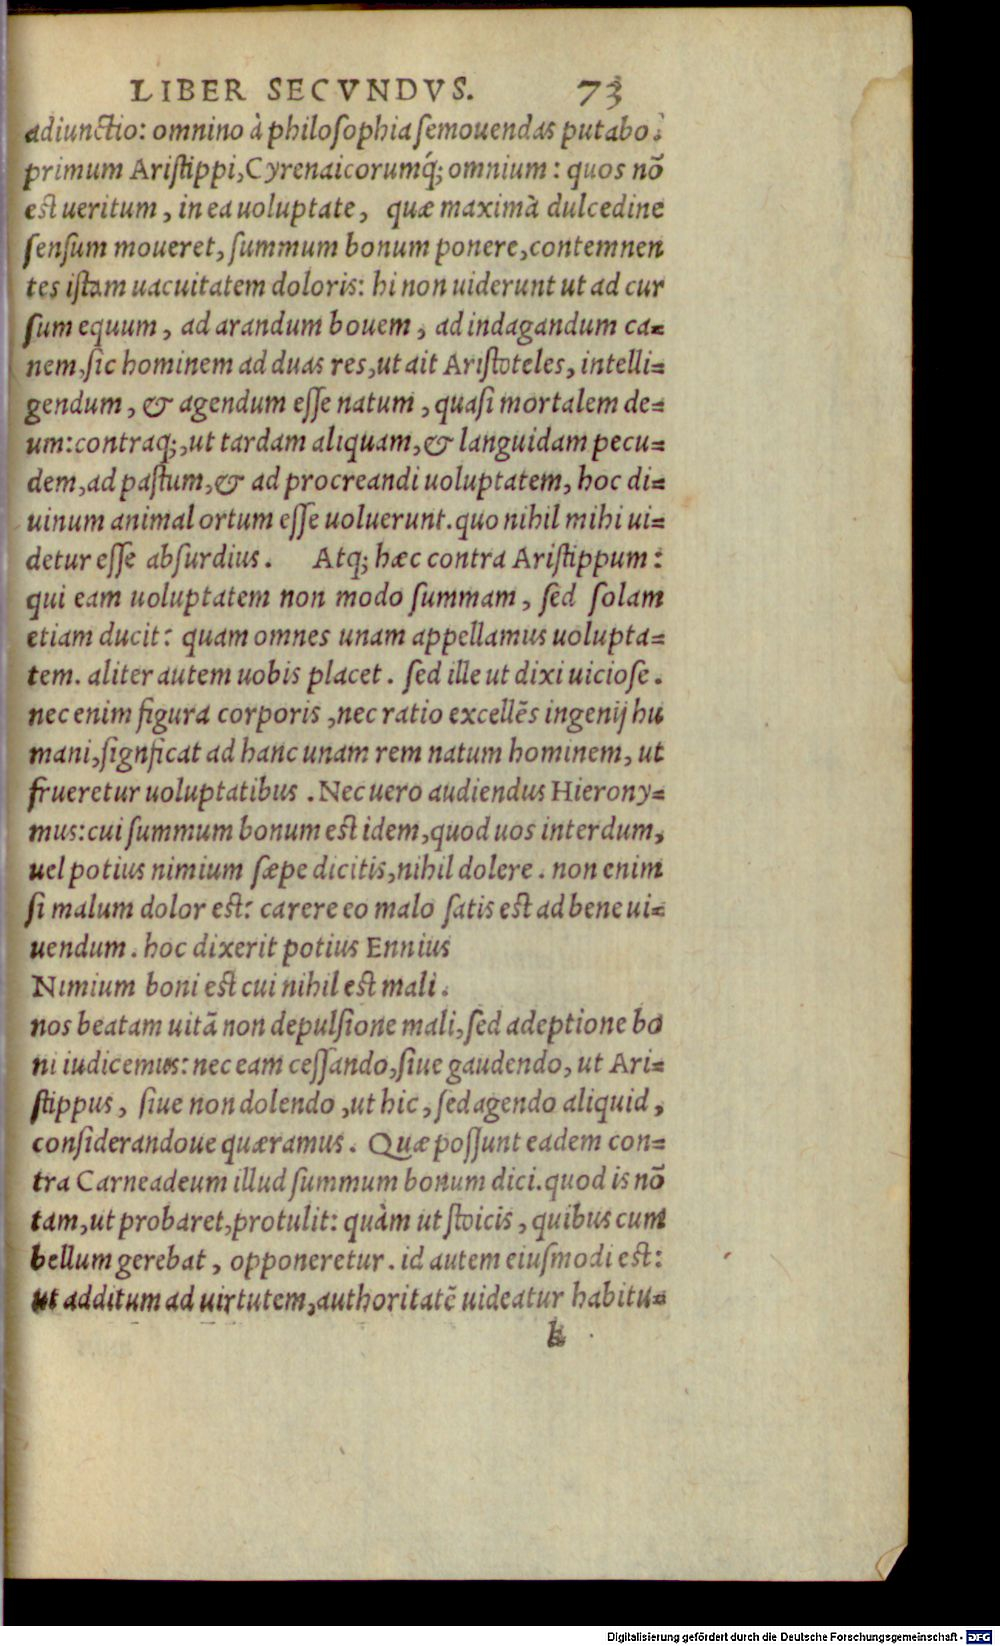 LIBER SECVNDVS. 73
adiunctio: omnino à philosophia semouendas putabo.
primum Aristippi,Cyrenaicorumq́; omnium: quos nõ
est ueritum, in ea uoluptate, quæ maximà dulcedine
sensum moueret, summum bonum ponere,contemnen
tes istam uacuitatem doloris: hi non uiderunt ut ad cur
sum equum, ad arandum bouem, ad indagandum ca=
nem,sic hominem ad duas res,ut ait Aristoteles, intelli=
gendum, & agendum esse natum, quasi mortalem de=
um:contraq;,ut tardam aliquam,& languidam pecu=
dem,ad pastum,& ad procreandi uoluptatem, hoc di=
uinum animal ortum esse uoluerunt.quo nihil mihi ui=
detur esse absurdius. Atq; hæc contra Aristippum:
qui eam uoluptatem non modo summam, sed solam
etiam ducit: quam omnes unam appellamus uolupta=
tem. aliter autem uobis placet. sed ille ut dixi uiciose.
nec enim figura corporis ,nec ratio excellẽs ingenij hu
mani,signficat ad hanc unam rem natum hominem, ut
frueretur uoluptatibus .Nec uero audiendus Hierony=
mus:cui summum bonum est idem,quod uos interdum,
uel potius nimium sæpe dicitis,nihil dolere. non enim
si malum dolor est: carere eo malo satis est ad bene ui=
uendum. hoc dixerit potius Ennius
Nimium boni est cui nihil est mali.
nos beatam uitã non depulsione mali,sed adeptione bo
ni iudicemus: nec eam cessando,siue gaudendo, ut Ari=
stippus, siue non dolendo ,ut hic, sed agendo aliquid,
considerandoue quæramus. Quæ possunt eadem con=
tra Carneadeum illud summum bonum dici.quod is nõ
tam,ut probaret,protulit: quàm ut stoicis, quibus cum
bellum gerebat, opponeretur. id autem eiusmodi est:
ut additum ad uirtutem,authoritatẽ uideatur habitu=
k
Digitalisierung gefördert durch die Deutsche Forschungsgemeinschaft - DFG